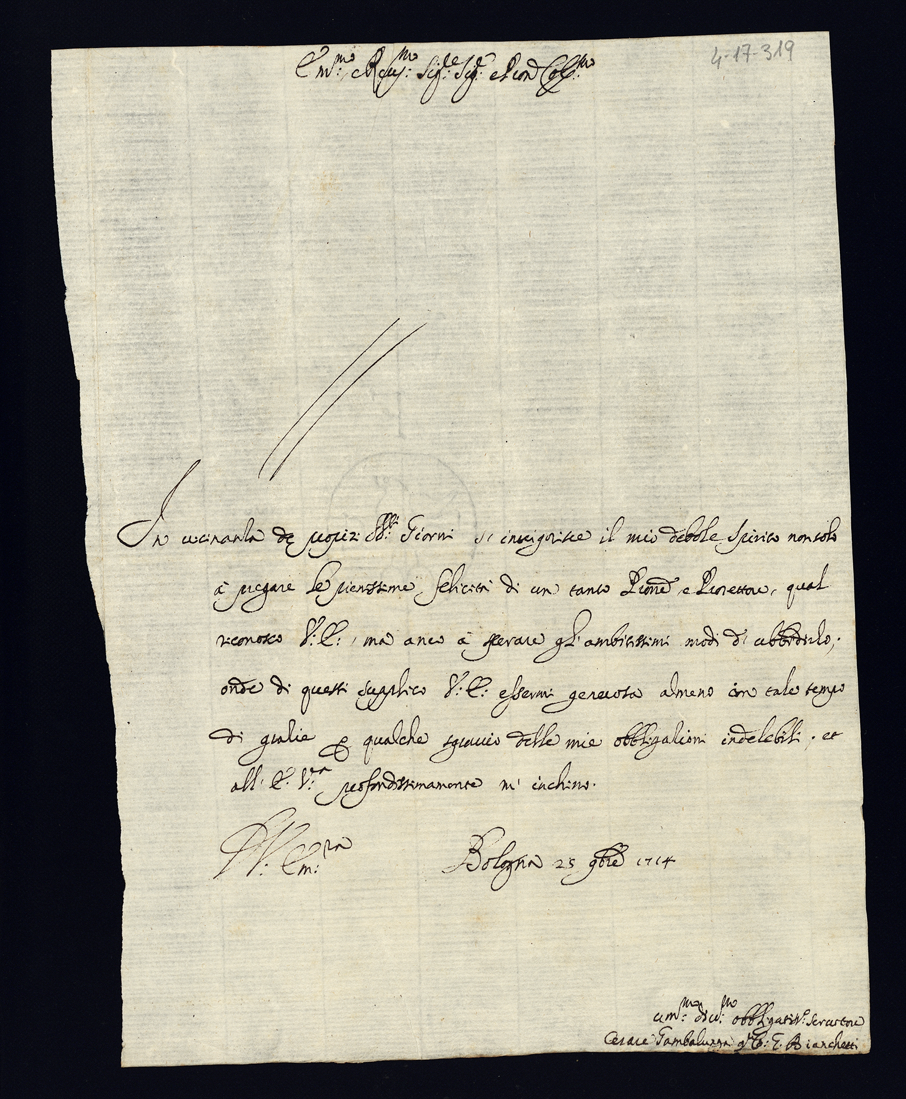 4-17-319
Em.mo e Rev.mo Sig.re Sig.re e Pron Col.mo
In vicinanza de proprizi SS.mi Giorni si invigorisce il mio debole spirito non solo
à pregare le pienissime felicità di un tanto Prone, e Protettore, qual
riconosco V: E:, ma anco à sperare gl'ambitissimi modi di ubbidirlo;
onde di questi supplico V: E: essermi generosa almeno in tale tempo
di grazie p qualche sgravio delle mie obbligazioni indelebili; et
all' E. V.ra profondissimamente m' inchino.
D V: Em.za
Bologna 25 9bre 1714
um.mo div.mo obbligatis.o servitore
Cesare Tambaluzza Bianchetti